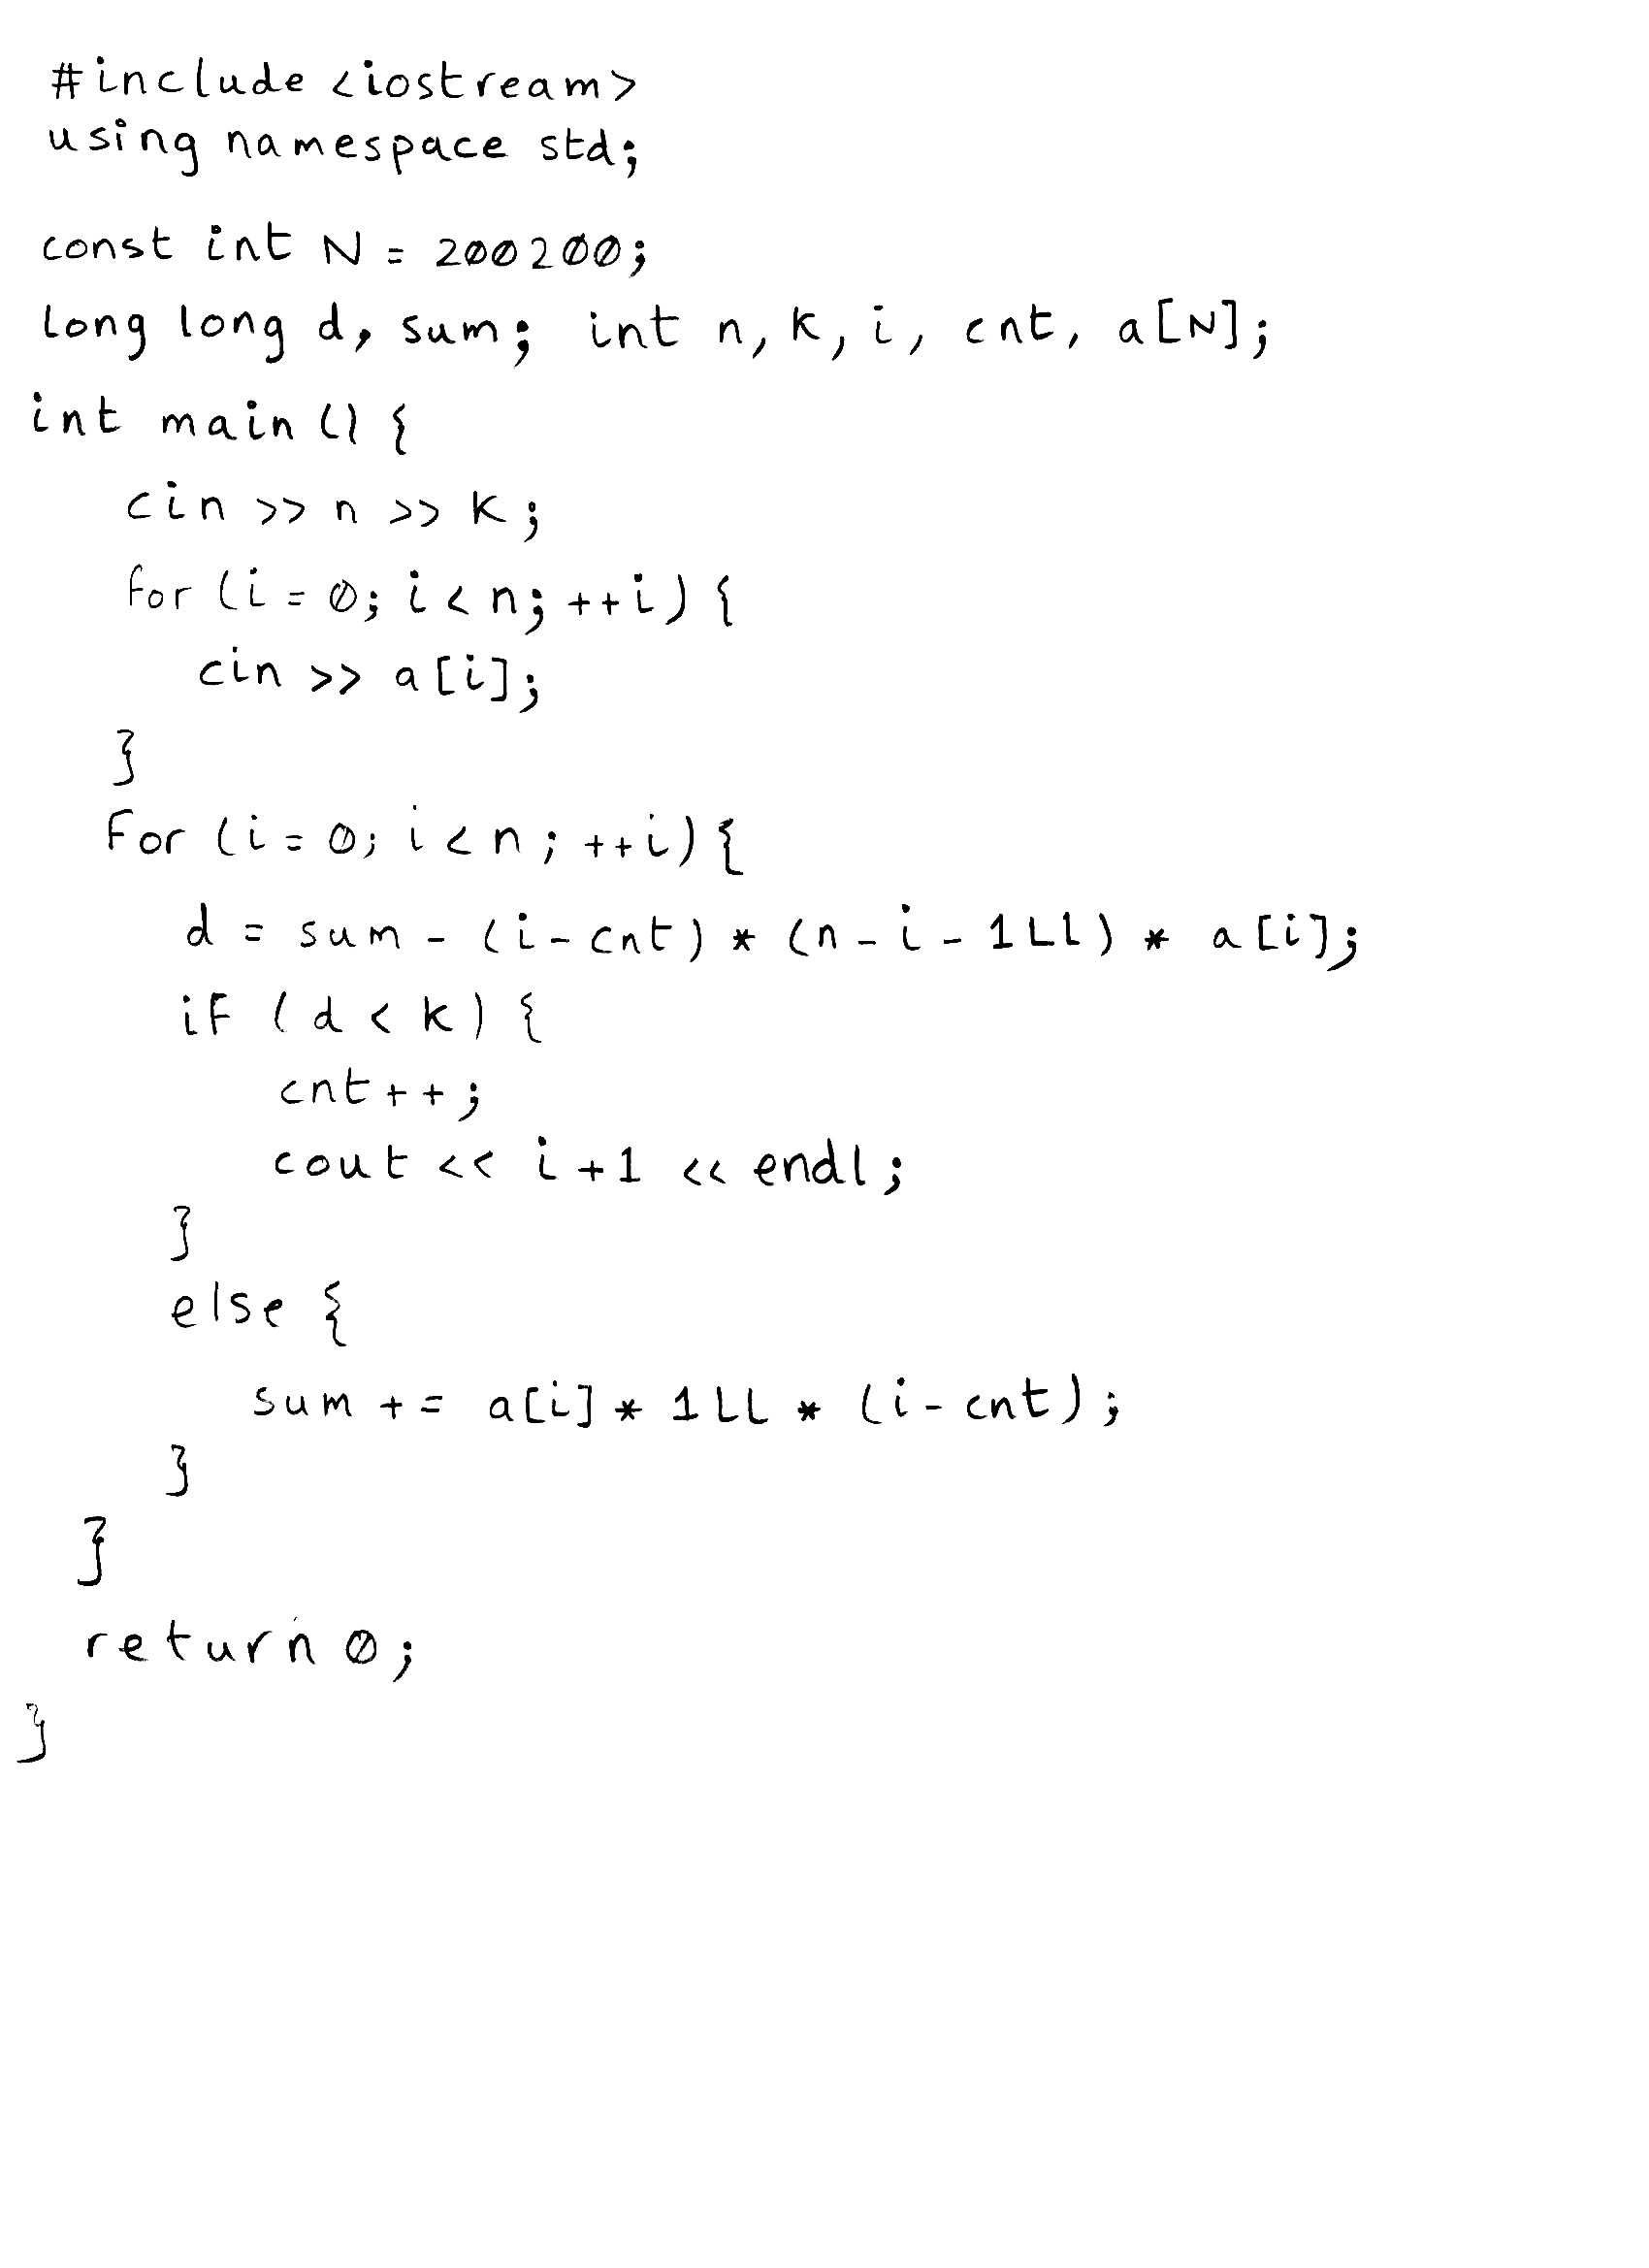 #include <iostream>
using namespace std;
const int N = 200200;
long long d, sum; int n, k, i, cnt, a[N];
int main() {
cin >> n >> k;
for (i = 0; i < n; ++i) {
cin >> a[i];
}
for (i = 0; i < n; ++i) {
d = sum - (i - cnt) * (n - i - 1LL) * a[i];
if (d < k) {
cnt++;
cout << i+1 << endl;
}
else {
sum += a[i] * 1LL * (i - cnt);
}
}
return 0;
}